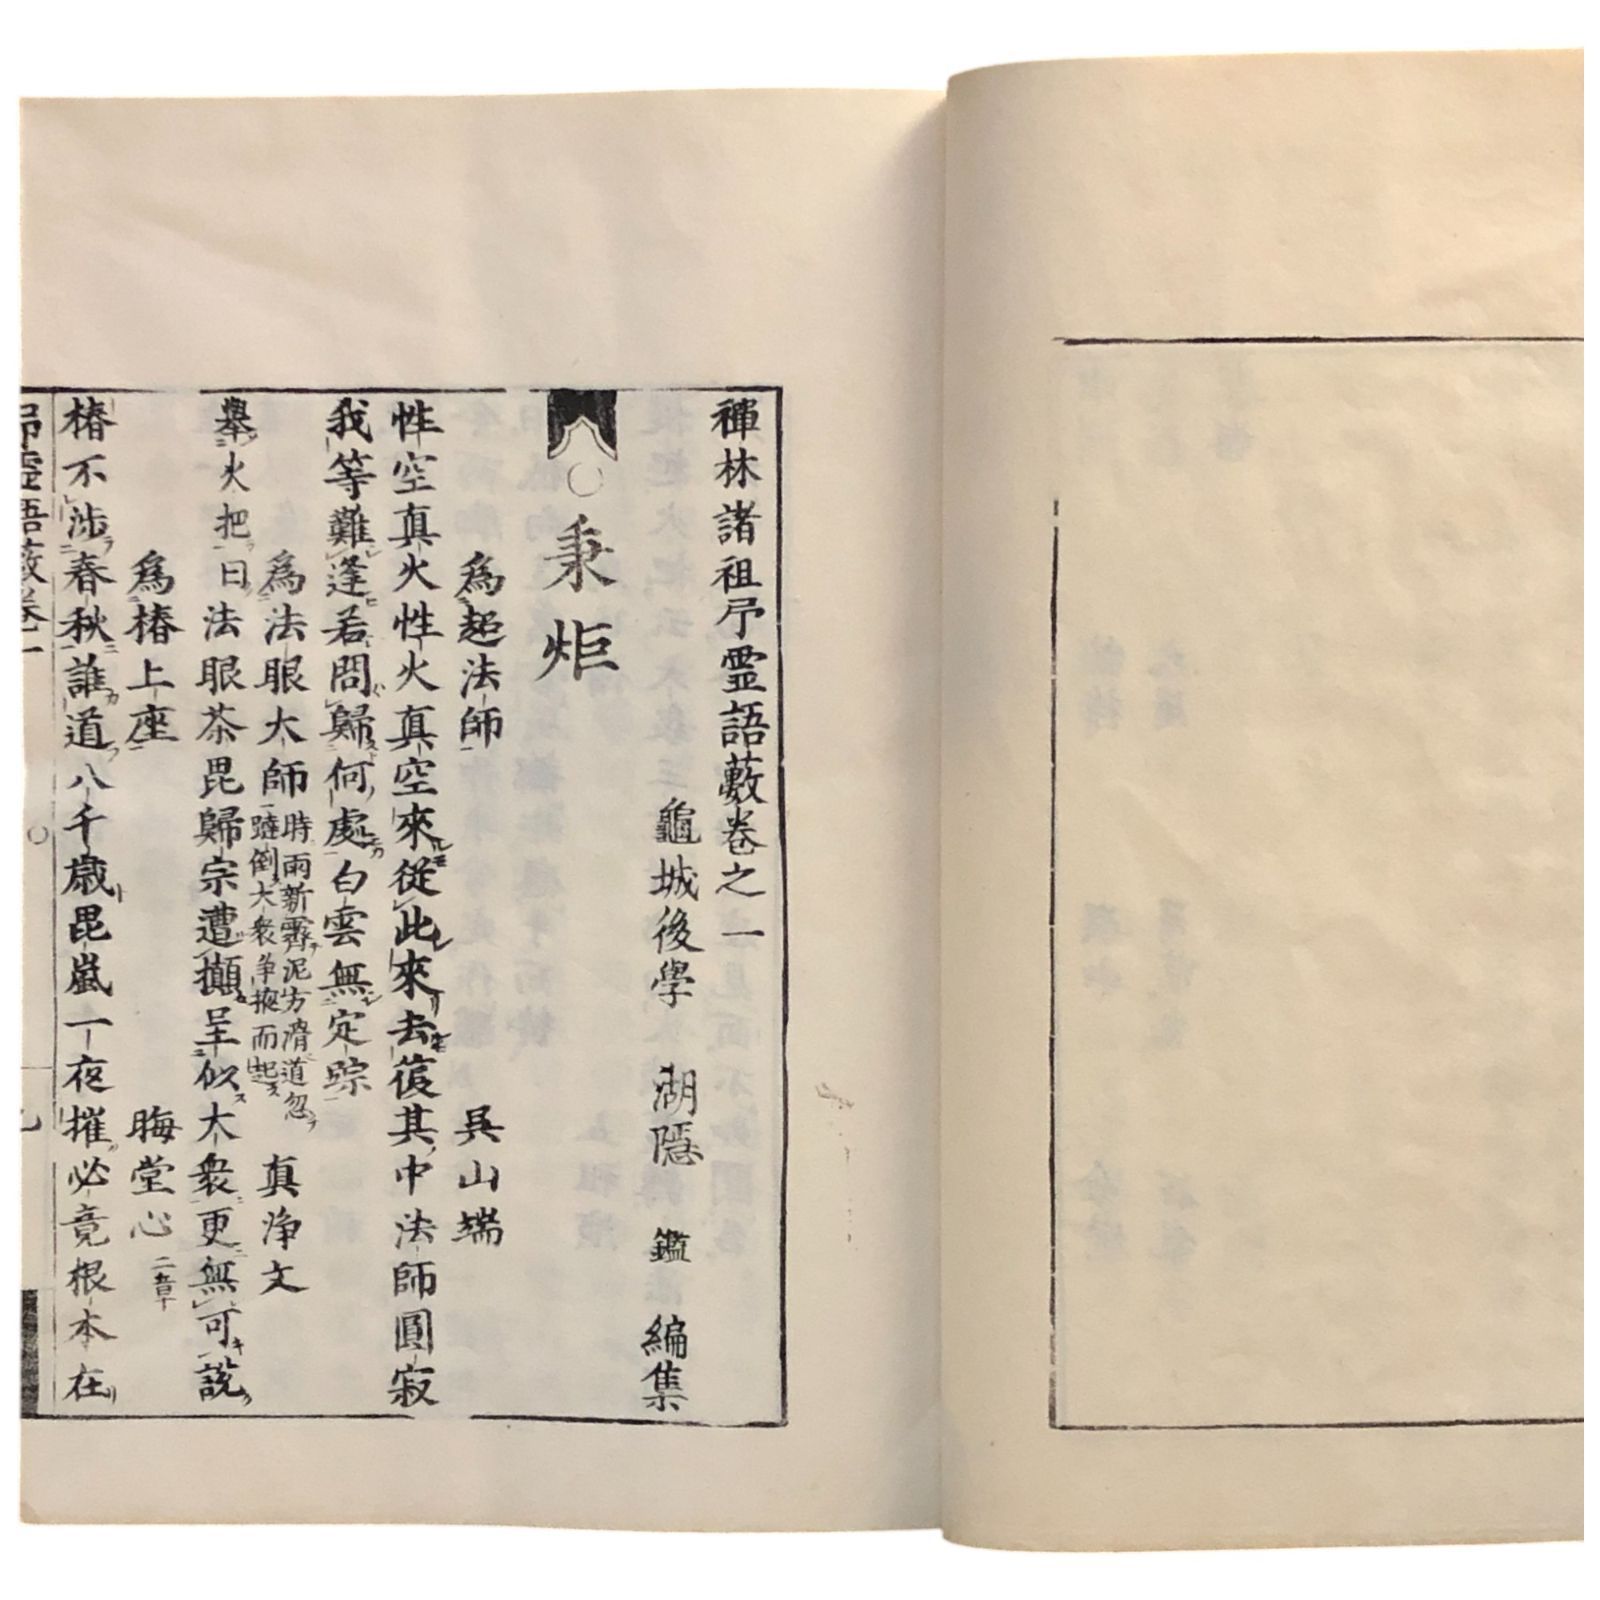 禪林諸祖弔霊語藪卷之一
龜城後學 湖隱 鑑 編集
○秉炬
為起法師 吳山端
性空真火性火真空來從此來去復其中法師圓寂
我等難逢若問歸何處白雲無定踪
為法眼大師 時雨新霽泥方滑道忽 真淨文
躂倒大衆爭掖而起
擧火把曰法眼茶毘歸宗遭攧呈似大衆更無可說
為椿上座 晦堂心 二章
椿不涉春秋誰道八千歲毘嵐一夜摧必竟根本在
弔霊語藪卷一